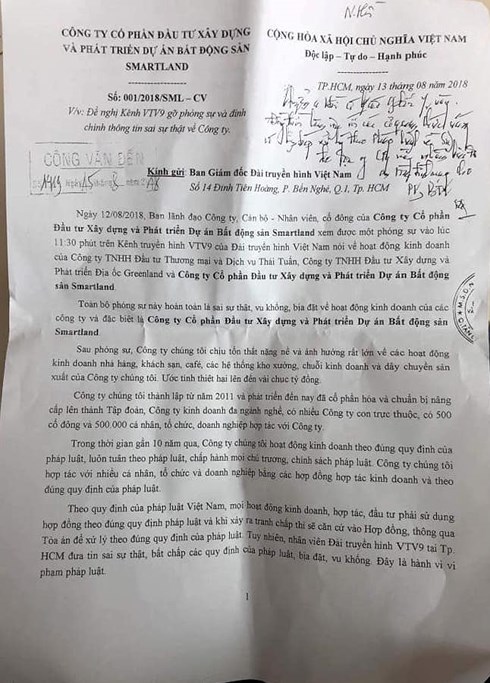 N.Hồ
CÔNG TY CỔ PHẦN ĐẦU TƯ XÂY DỰNG
VÀ PHÁT TRIỂN DỰ ÁN BẤT ĐỘNG SẢN
SMARTLAND
CỘNG HÒA XÃ HỘI CHỦ NGHĨA VIỆT NAM
Độc lập - Tự do – Hạnh phúc
Số: 001/2018/SML – CV
TP.HCM, ngày 13 tháng 08 năm 2018
V/v: Đề nghị Kênh VTV9 gỡ phóng sự và đính
chính thông tin sai sự thật về Công ty.
CÔNG VĂN ĐẾN
Kính gửi: Ban Giám đốc Đài truyền hình Việt Nam
Số 14 Đinh Tiên Hoàng, P. Bến Nghé, Q.1, Tp. HCM
Ngày 12/08/2018, Ban lãnh đạo Công ty, Cán bộ - Nhân viên, cổ đông của Công ty Cổ phần
Đầu tư Xây dựng và Phát triển Dự án Bất động sản Smartland xem được một phóng sự vào lúc
11:30 phút trên Kênh truyền hình VTV9 của Đài truyền hình Việt Nam nói về hoạt động kinh doanh
của Công ty TNHH Đầu tư Thương mại và Dịch vụ Thái Tuấn, Công ty TNHH Đầu tư Xây dựng và
Phát triển Địa ốc Greenland và Công ty Cổ phần Đầu tư Xây dựng và Phát triển Dự án Bất động
sản Smartland.
Toàn bộ phóng sự này hoàn toàn là sai sự thật, vu khống, bịa đặt về hoạt động kinh doanh của các
công ty và đặc biệt là Công ty Cổ phần Đầu tư Xây dựng và Phát triển Dự án Bất động sản
Smartland.
Sau phóng sự, Công ty chúng tôi chịu tổn thất nặng nề và ảnh hưởng rất lớn về các hoạt động
kinh doanh nhà hàng, khách sạn, café, các hệ thống kho xưởng, chuỗi kinh doanh và dây chuyền sản
xuất của Công ty chúng tôi. Ước tính thiệt hại lên đến vài chục tỷ đồng.
Công ty chúng tôi thành lập từ năm 2011 và phát triển đến nay đã cổ phần hóa và chuẩn bị nâng
cấp lên thành Tập đoàn, Công ty kinh doanh đa ngành nghề, có nhiều Công ty con trực thuộc, có 500
cổ đông và 500.000 cá nhân, tổ chức, doanh nghiệp hợp tác với Công ty.
Trong thời gian gần 10 năm qua, Công ty chúng tôi hoạt động kinh doanh theo đúng quy định của
pháp luật, luôn tuân theo pháp luật, chấp hành mọi chủ trương, chính sách pháp luật. Công ty chúng tôi
hợp tác với nhiều cá nhân, tổ chức và doanh nghiệp bằng các hợp đồng hợp tác kinh doanh và theo
đúng quy định của pháp luật.
Theo quy định của pháp luật Việt Nam, mọi hoạt động kinh doanh, hợp tác, đầu tư phải sử dụng
hợp đồng theo đúng quy định pháp luật và khi xảy ra tranh chấp thì sẽ căn cứ vào Hợp đồng, thông qua
Tòa án để xử lý theo đúng quy định của pháp luật. Tuy nhiên, nhân viên Đài truyền hình VTV9 tại Tp.
HCM đưa tin sai sự thật, bất chấp các quy định của pháp luật, bịa đặt, vu khống. Đây là hành vi vi
phạm pháp luật.
1